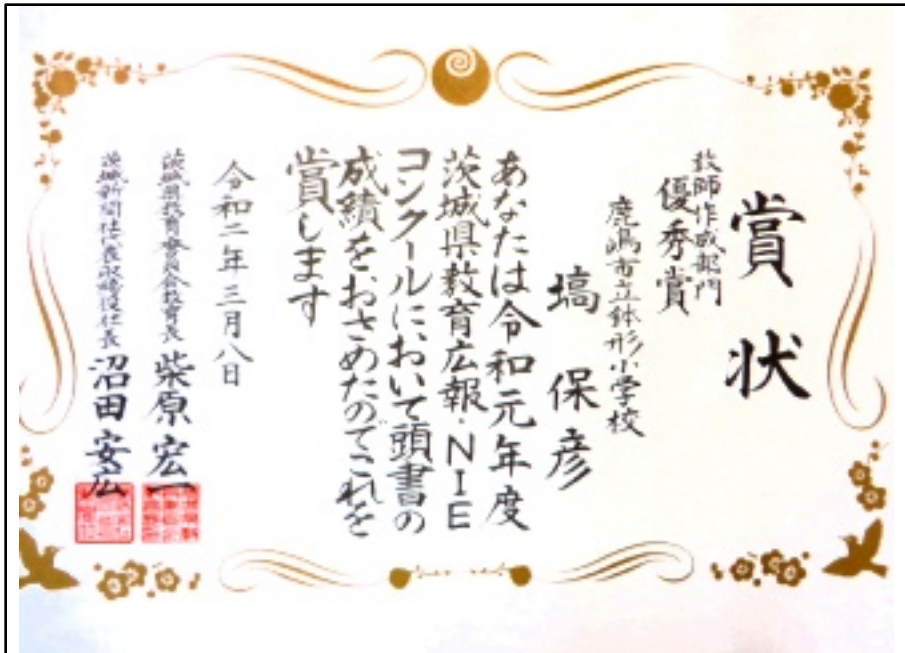 賞状
教師作成部門
優秀賞
鹿嶋市立鉢形小学校
塙保彦
あなたは令和元年度
茨城県教育広報・NIE
コンクールにおいて頭書の
成績をおさめたのでこれを
賞します
令和二年三月八日
茨城県教育委員会教育長 柴原宏一
茨城新聞社代表取締役社長 沼田安広